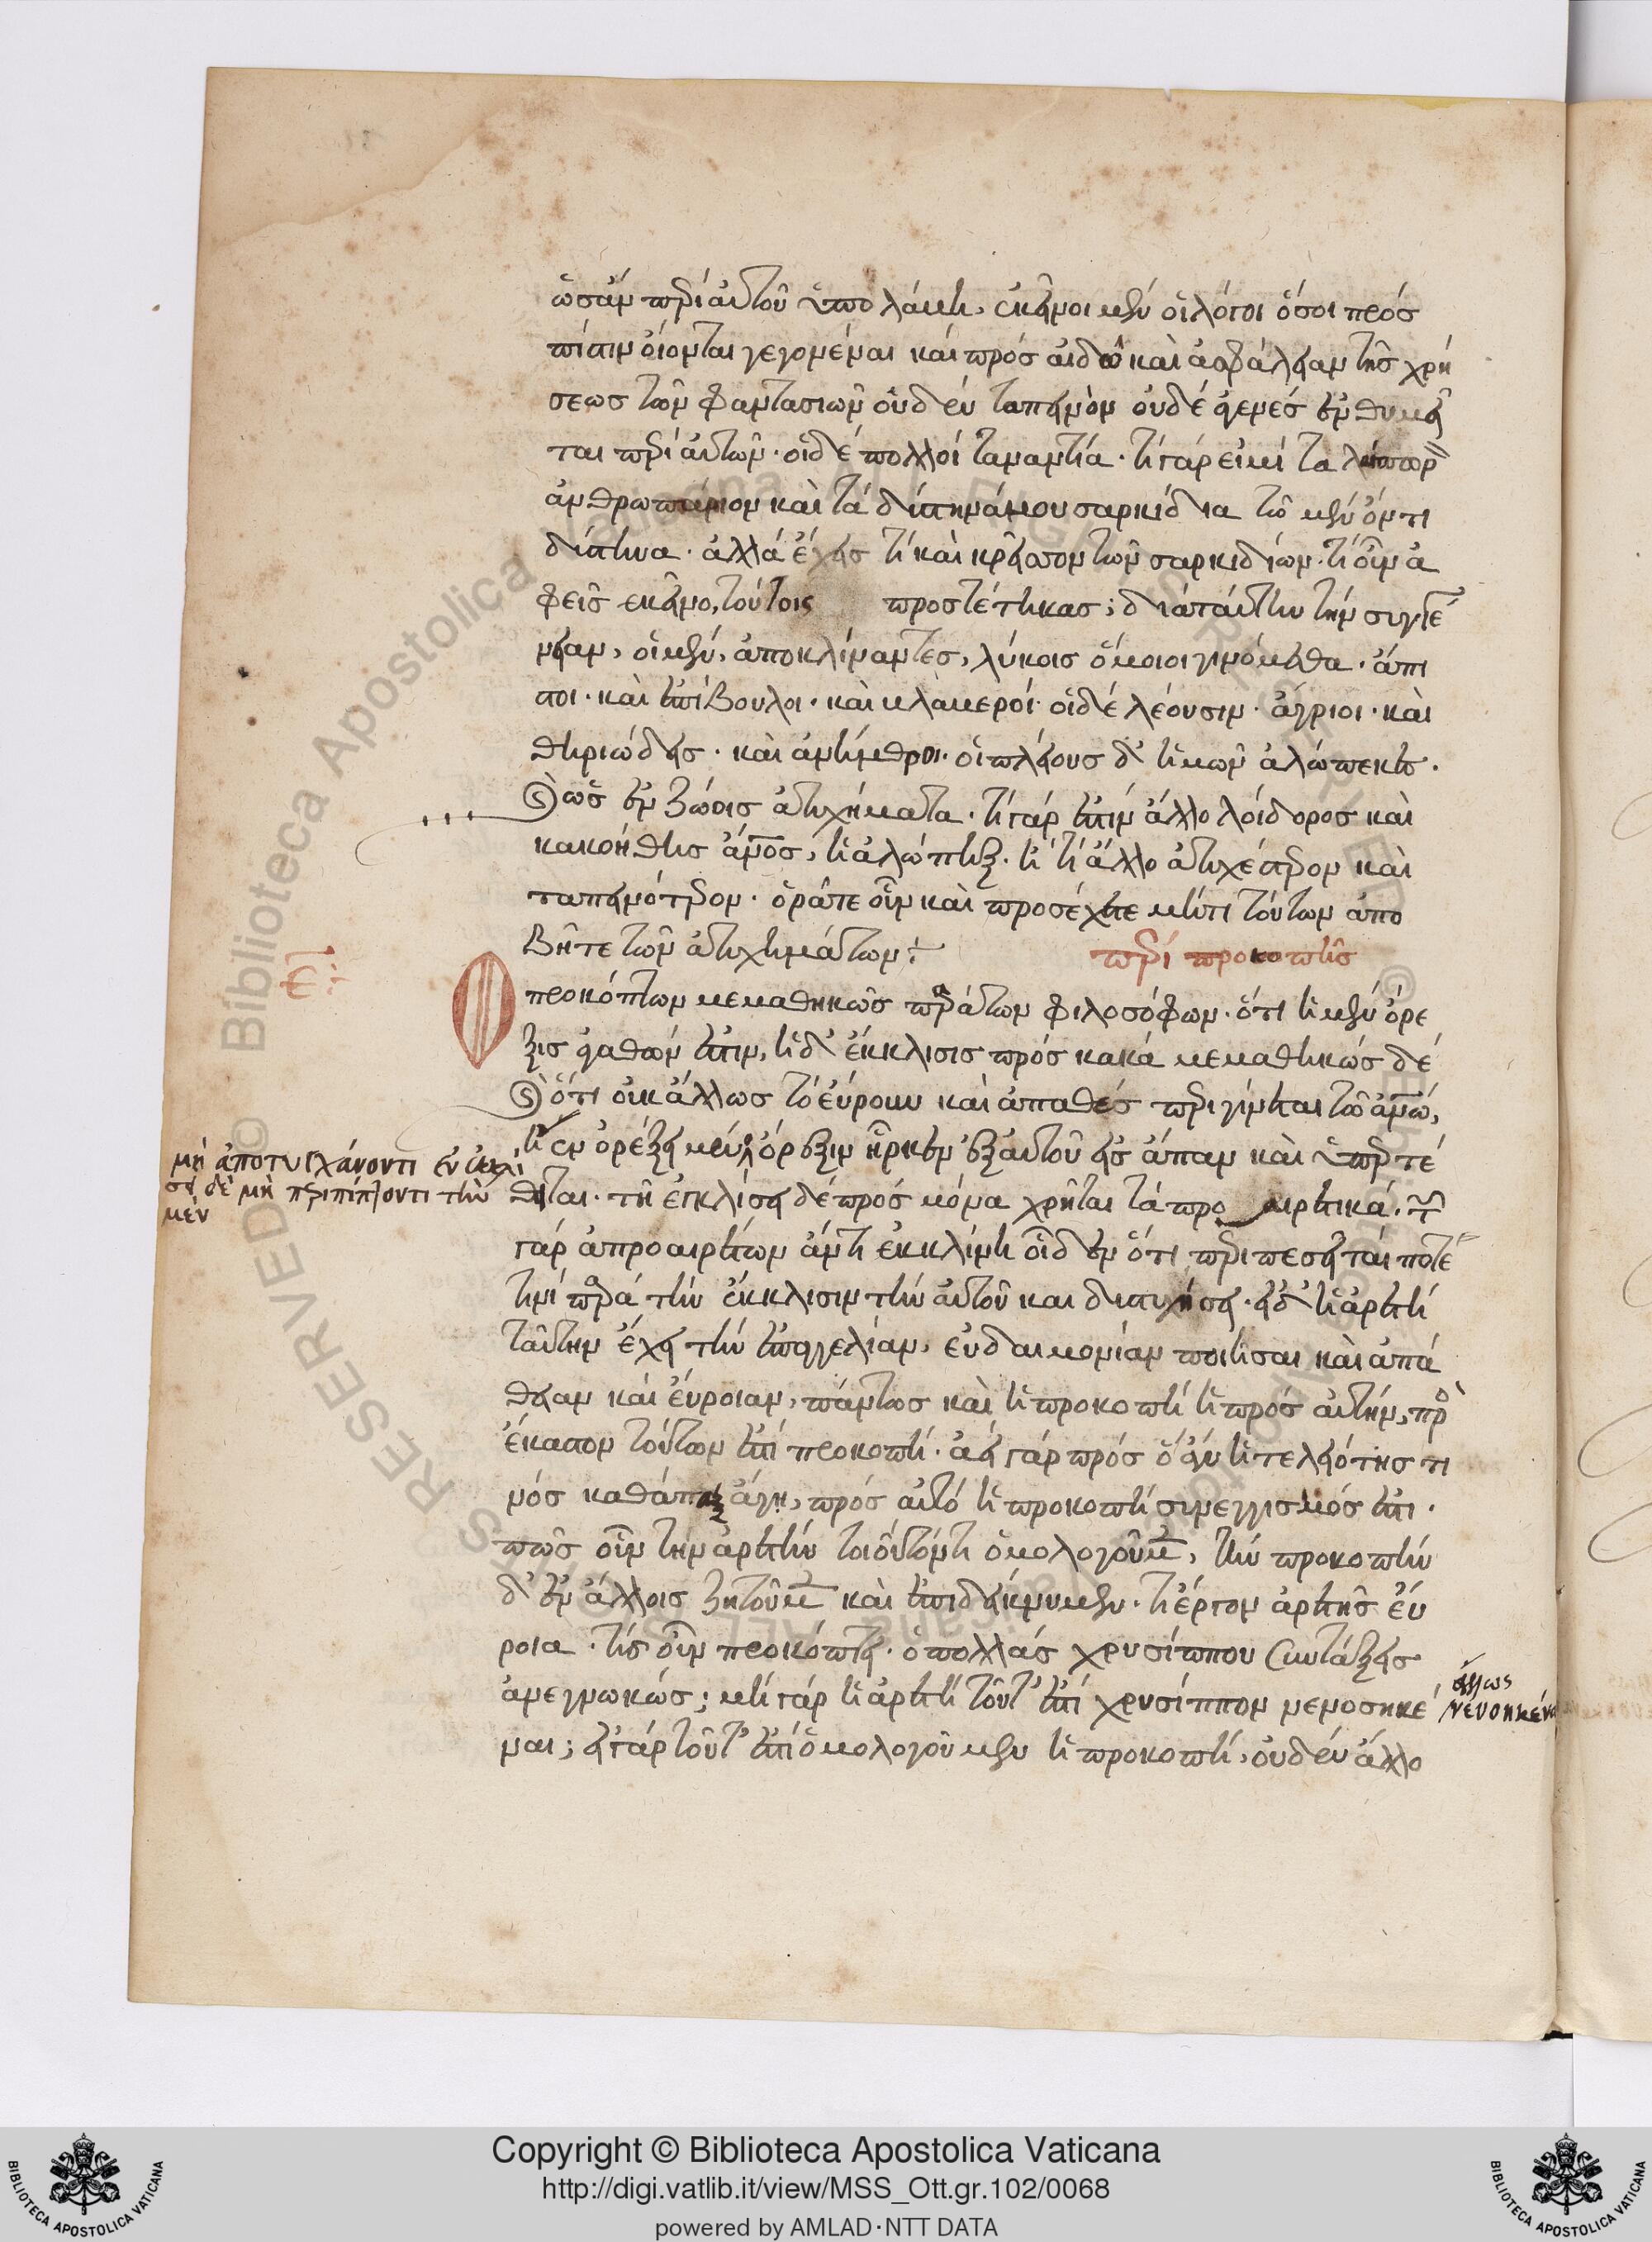 ὡς ἂν περὶ αὐτοῦ ὑπολάβη, ἐκεῖνοι μὲν οἱ λόγοι ὅσοι πρὸς
πίστιν οἴονται γεγονέναι καὶ πρὸς αἰδῶ καὶ ἀσφάλειαν τῆς χρή
σεως τῶν φαντασιῶν οὐδὲν ταπεινὸν οὐδὲ ἀγενὲς ἐνθυμεῖ
ται περὶ αὐτῶν· οἱ δὲ πολλοὶ τἀναντία· τί γὰρ εἰμί ταλαίπωρ
ἀνθρωπάριον καὶ τὰ δύστηνά μου σαρκίδια τῶ μὲν ὄντι
δύστηνα· ἀλλὰ ἔχεις τί καὶ κρεῖσσον τῶν σαρκιδίων· τί οὖν ἀ
φεὶς ἐκεῖνο, τούτοις προστέτηκας; διὰ ταύτην τὴν συγγέ
νειαν, οἱ μὲν, ἀποκλίναντες, λύκοις ὅμοιοι γινόμεθα· ἄπι
στοι· καὶ ἐπίβουλοι· καὶ βλαβεροί· οἱ δὲ λέουσιν· ἄγριοι· καὶ
θηριώδεις· καὶ ἀνήμεροι· οἱ πλείους δ' ἡμῶν ἀλώπεκες·
ὡς ἐν ζώοις ἀτυχήματα· τί γάρ ἐστιν ἄλλο λοίδορος καὶ
κακοήθης ἄνος, ἢ ἀλώπηξ· ἢ τί ἄλλο ἀτυχέστερον καὶ
ταπεινότερον· ὁρᾶτε οὖν καὶ προσέχετε μή τι τούτων ἀπο
βῆτε τῶν ἀτυχημάτων:
περὶ προκοπῆς
Ο προκόπτων μεμαθηκὼς παρὰ τῶν φιλοσόφων· ὅτι ἡ μὲν ὄρε
ξις ἀγαθῶν ἐστιν, ἡ δ' ἔκκλισις πρὸς κακὰ μεμαθηκὼς δὲ
ὅτι οὐκ ἄλλως τὸ εὔρουν καὶ ἀπαθὲς περιγίνεται τῶ ἀνω,
ἢ ἐν ὀρέξει μὲν ὄρεξιν ἦρκεν ἐξ αὐτοῦ εἰς ἅπαν καὶ ὑπερτέ
θειται· τῆ ἐκκλίσει δὲ πρὸς μόνα χρῆται τὰ προαιρετικά· τ
γὰρ ἀπροαιρέτων ἄν τι ἐκκλίνη οἶδεν ὅτι περιπεσεῖται ποτέ
τινι παρὰ τὴν ἔκκλισιν τὴν αὐτοῦ και δυστυχήσει· εἰ δ' ἡ ἀρετὴ
ταύτην ἔχει τὴν ἐπαγγελίαν, εὐδαιμονίαν ποιῆσαι καὶ ἀπά
θειαν καὶ εὔροιαν, πάντως καὶ ἡ προκοπὴ ἡ πρὸς αὐτήν, πρὸ
ἕκαστον τούτων ἐστὶ προκοπή· ἀεὶ γὰρ πρὸς ὃ ἂν ἡ τελειότης τι
νὸς καθάπαξ ἄγη, πρὸς αὐτὸ ἡ προκοπὴ συνεγγισμός ἐστι·
πῶς οὖν τὴν ἀρετὴν τοιοῦτόν τι ὁμολογοῦμ, τὴν προκοπὴν
δ' ἐν ἄλλοις ζητοῦμ καὶ ἐπιδείκνυμεν· τί ἔργον ἀρετῆς εὔ
ροια· τίς οὖν προκόπτει· ὁ πολλὰς χρυσίππου συντάξεις
ἀνεγνωκώς; μὴ γὰρ ἡ ἀρετὴ τοῦτ' ἐστὶ χρύσιππον νενοσηκέ
ναι; εἰ γὰρ τοῦτ' ἐστὶ ὁμολογοῦμεν ἡ προκοπή, οὐδὲν ἄλλο
μὴ ἀποτυγχάνοντι ἐν ἐκκλί
σει δὲ μὴ περιπίπτοντι τὴν
μὲν
ἄλλως
νενοηκένα
Copyright © Biblioteca Apostolica Vaticana
http://digi.vatlib.it/view/MSS_Ott.gr.102/0068
powered by AMLAD·NTT DATA
BIBLIOTECA APOSTOLICA VATICANA
BIBLIOTECA APOSTOLICA VATICANA